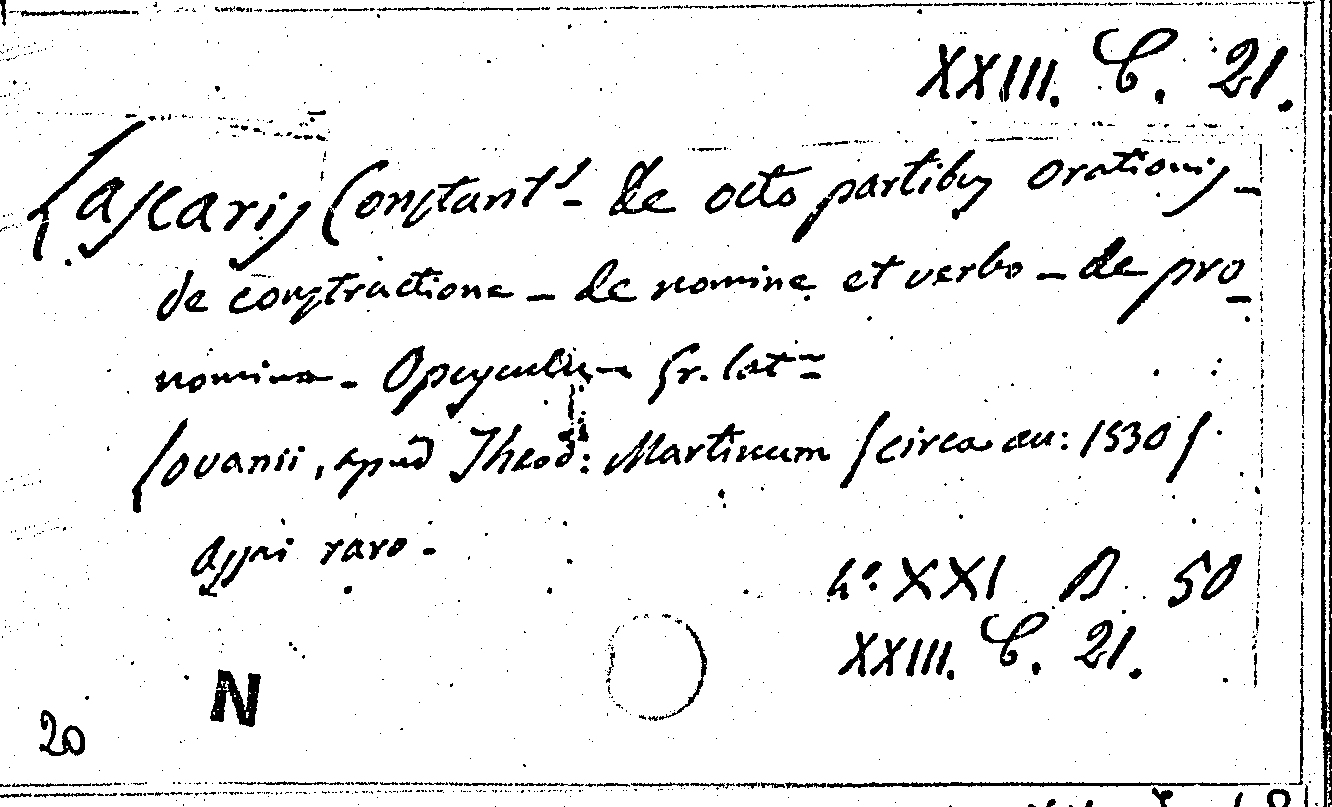 XXIII. C. 21.
Lascaris Constant.i - De octo partibus orationis -
de constructione - de nomine et verbo - de pro
nomine - Opusculum Gr. lat.m
Lovanii, apud Theod: Martinum (circa an: 1530).
Assai raro -
4.o XXI B 50
XXIII. C. 21.
N
20